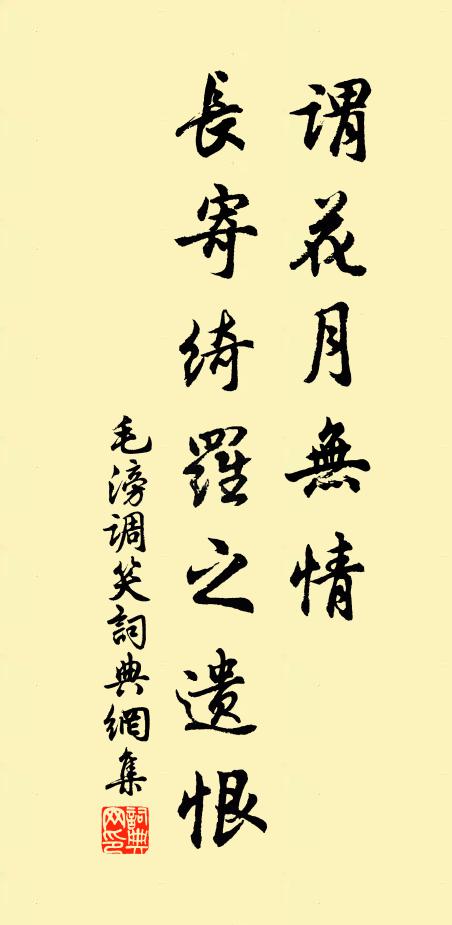 謂花月無情
長寄綺羅之遺恨
毛滂调笑詞典網集
詞典网印